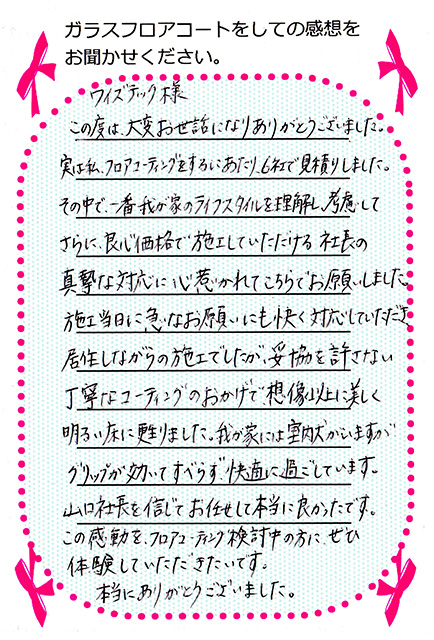 ガラスフロアコートをしての感想を
お聞かせください。
ワイズテック様
この度は、大変お世話になりありがとうございました。
実は私、フロアコーティングをするにあたり、6社で見積りしました。
その中で、一番我が家のライフスタイルを理解し、考慮して
さらに、良心価格で施工していただける社長の
真摯な対応に心惹かれてこちらでお願いしました。
施工当日に急なお願いにも快く対応していただき
居住しながらの施工でしたが、妥協を許さない
丁寧なコーティングのおかげで想像以上に美しく
明るい床に甦りました。我が家には室内犬がいますが
グリップが効いてすべらず、快適に過ごしています。
山口社長を信じてお任せして本当に良かったです。
この感動を、フロアコーティング検討中の方に、ぜひ
体験していただきたいです。
本当にありがとうございました。